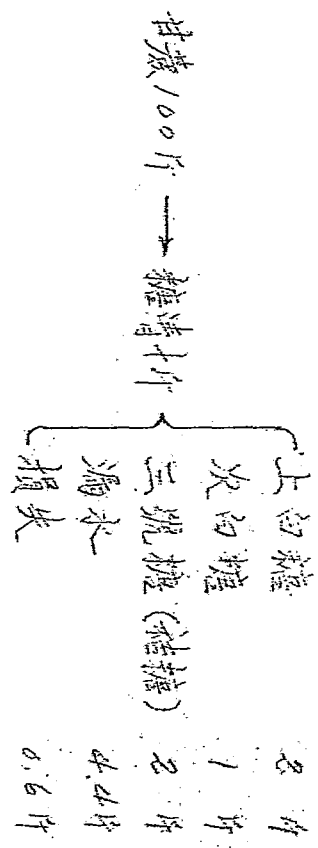 甘蔗100斤 → 糖清十斤
上白糖 2斤
次白糖 1斤
三級糖(赭糖) 2斤
漏水 4.4斤
損失 0.6斤